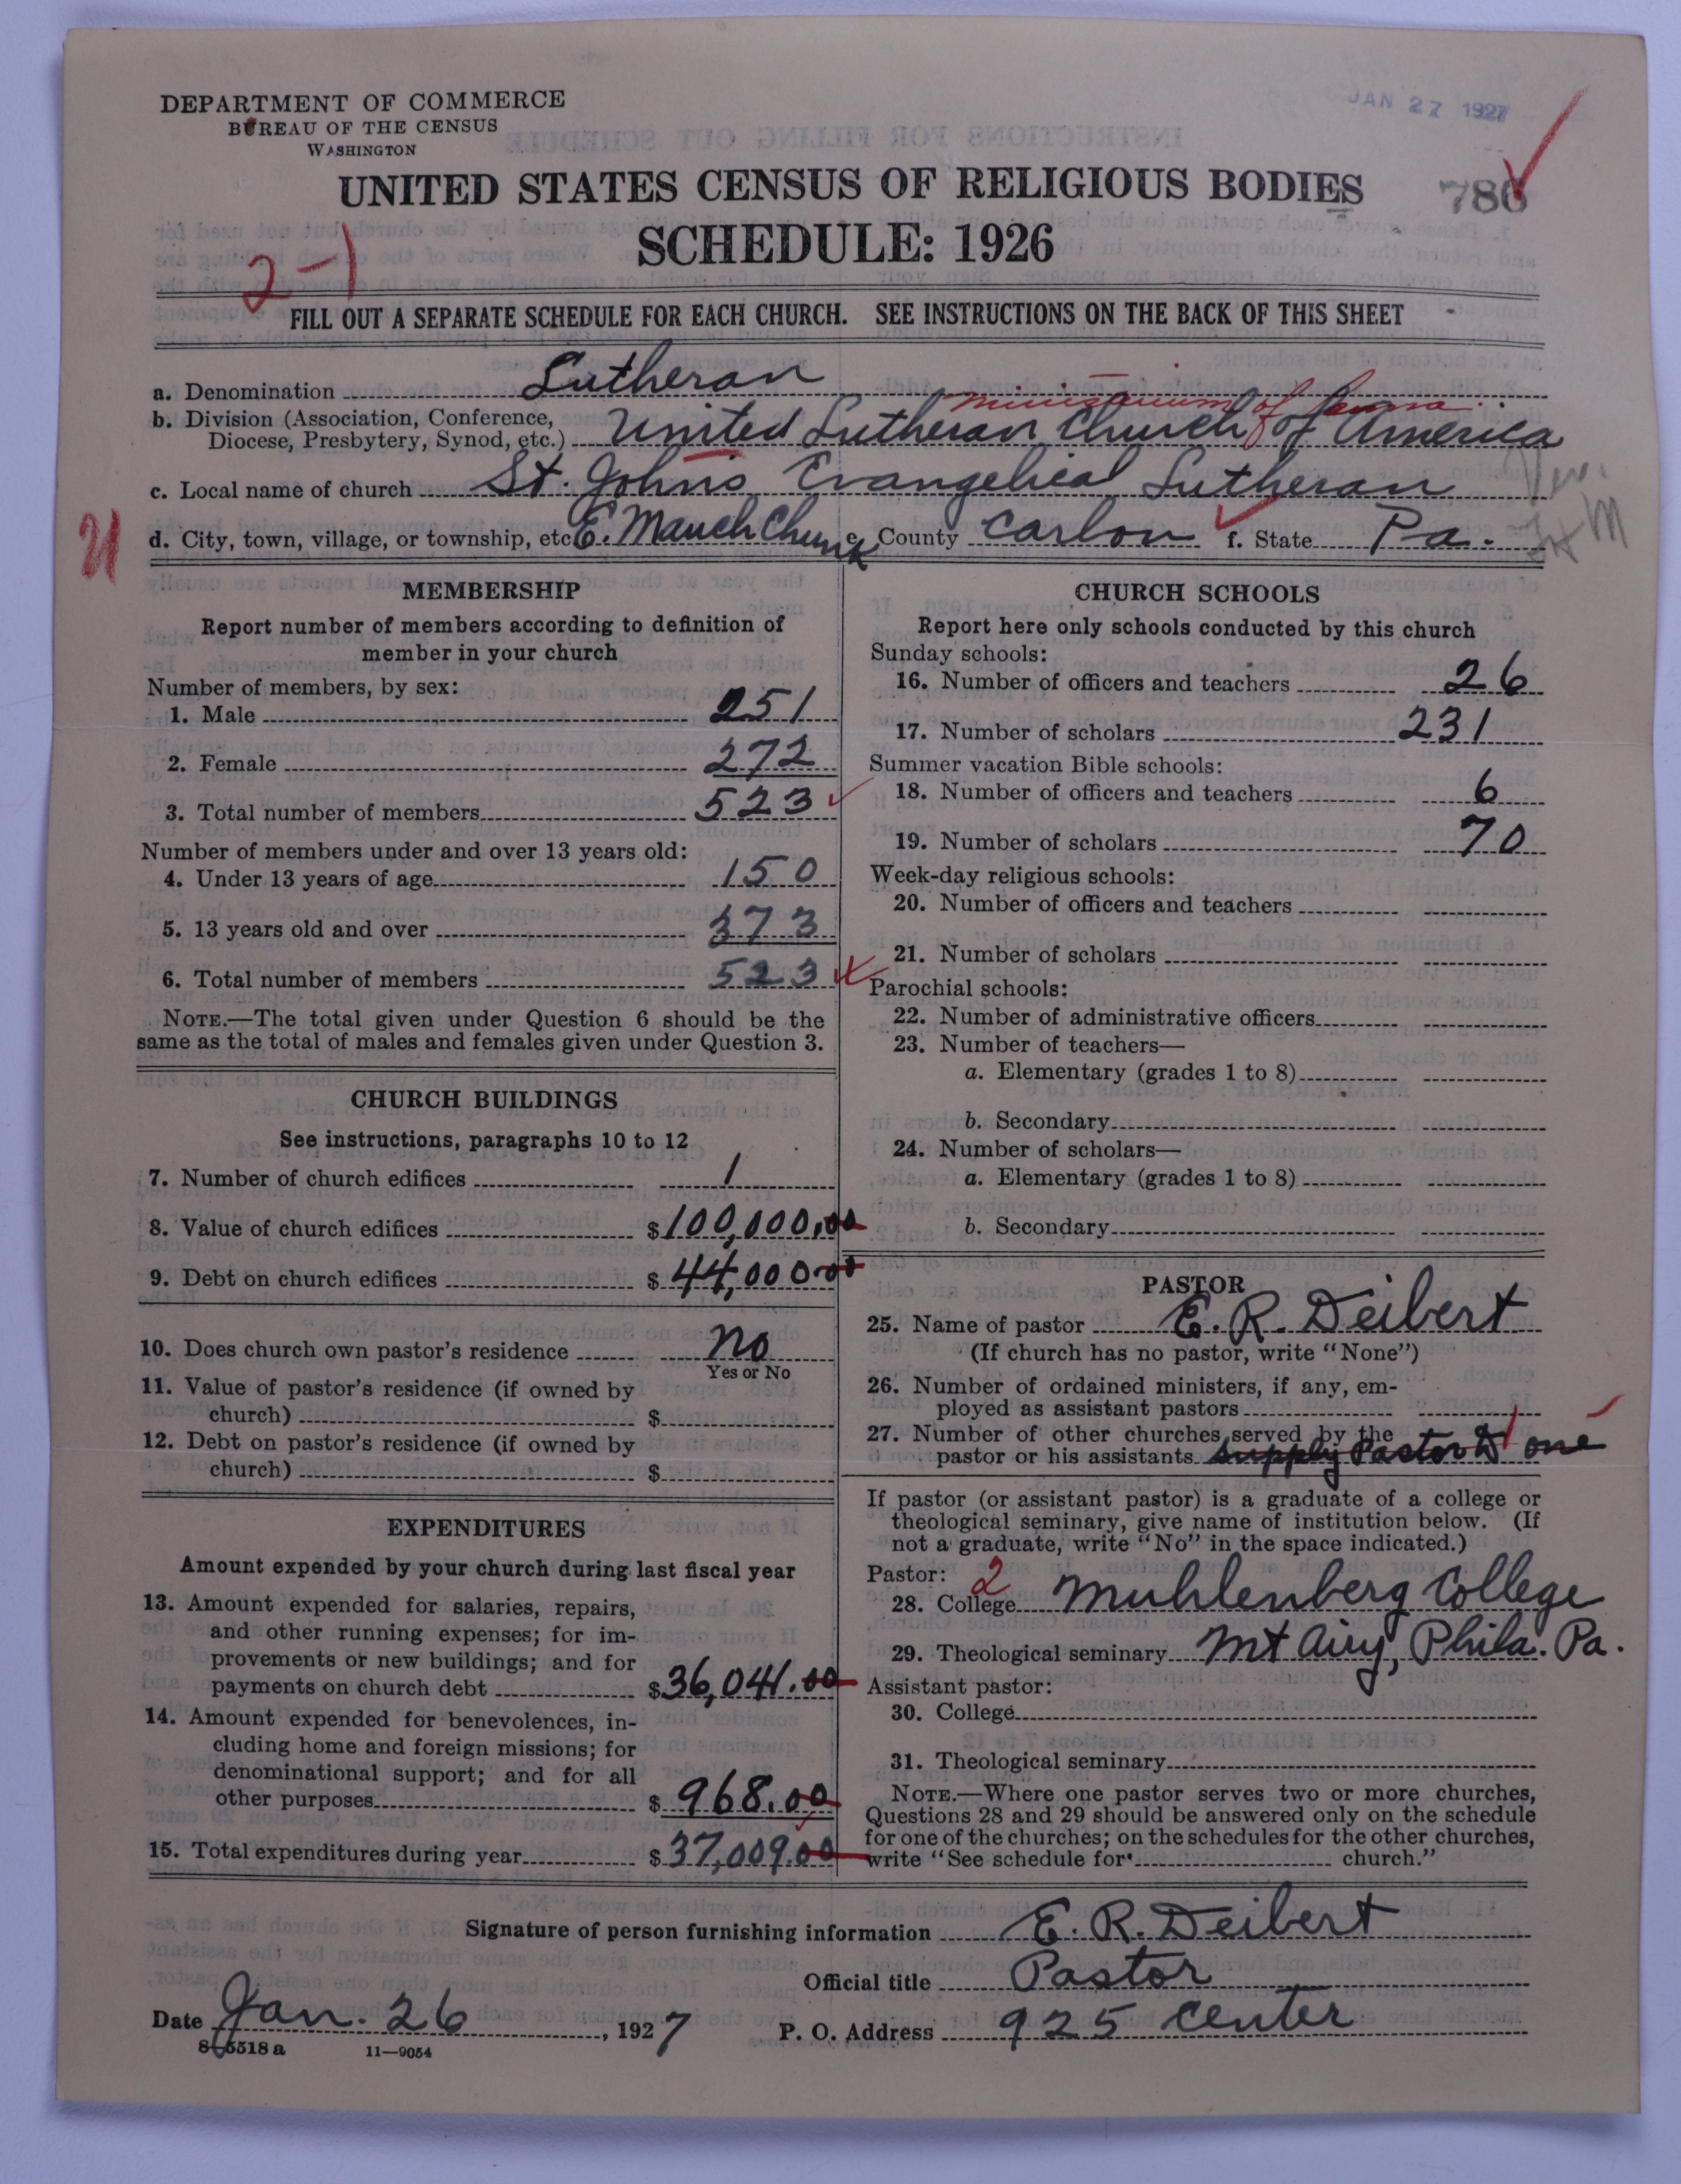 DEPARTMENT OF COMMERCE
BUREAU OF THE CENSUS
WASHINGTON
JAN 27 1927
UNITED STATES CENSUS OF RELIGIOUS BODIES
786
SCHEDULE: 1926
2-1
FILL OUT A SEPARATE SCHEDULE FOR EACH CHURCH. SEE INSTRUCTIONS ON THE BACK OF THIS SHEET
a. Denomination Lutheran
ministerium of Penna.
b. Division (Association, Conference, Diocese, Presbytery, Synod, etc.) United Lutheran Church of America
c. Local name of church St. John's Evangelical Lutheran
21
d. City, town, village, or township, etc. E. Mauch Chunk e. County Carbon f. State Pa.
MEMBERSHIP
Report number of members according to definition of
member in your church
Number of members, by sex:
1. Male 251
2. Female 272
3. Total number of members 523
Number of members under and over 13 years old:
4. Under 13 years of age 150
5. 13 years old and over 373
6. Total number of members 523
NOTE.—The total given under Question 6 should be the
same as the total of males and females given under Question 3.
CHURCH BUILDINGS
See instructions, paragraphs 10 to 12
7. Number of church edifices 1
8. Value of church edifices $100,000.00
9. Debt on church edifices $44,000.00
10. Does church own pastor's residence no
Yes or No
11. Value of pastor's residence (if owned by
church) $
12. Debt on pastor's residence (if owned by
church) $
EXPENDITURES
Amount expended by your church during last fiscal year
13. Amount expended for salaries, repairs,
and other running expenses; for im-
provements or new buildings; and for
payments on church debt $36,041.00
14. Amount expended for benevolences, in-
cluding home and foreign missions; for
denominational support; and for all
other purposes $968.00
15. Total expenditures during year $37,009.00
CHURCH SCHOOLS
Report here only schools conducted by this church
Sunday schools:
16. Number of officers and teachers 26
17. Number of scholars 231
Summer vacation Bible schools:
18. Number of officers and teachers 6
19. Number of scholars 70
Week-day religious schools:
20. Number of officers and teachers
21. Number of scholars
Parochial schools:
22. Number of administrative officers
23. Number of teachers—
a. Elementary (grades 1 to 8)
b. Secondary
24. Number of scholars—
a. Elementary (grades 1 to 8)
b. Secondary
PASTOR
25. Name of pastor E. R. Deibert
(If church has no pastor, write "None")
26. Number of ordained ministers, if any, em-
ployed as assistant pastors
27. Number of other churches served by the
pastor or his assistants supply Pastor to one
1
If pastor (or assistant pastor) is a graduate of a college or
theological seminary, give name of institution below. (If
not a graduate, write "No" in the space indicated.)
Pastor: 2
28. College Muhlenberg College
29. Theological seminary Mt Airy, Phila. Pa.
Assistant pastor:
30. College
31. Theological seminary
NOTE.—Where one pastor serves two or more churches,
Questions 28 and 29 should be answered only on the schedule
for one of the churches; on the schedules for the other churches,
write "See schedule for church."
Signature of person furnishing information E. R. Deibert
Official title Pastor
Date Jan. 26, 1927 P. O. Address 925 Center
8-5518 a 11—9054